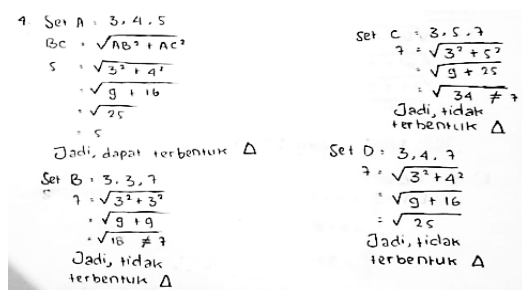 4. Set A : 3, 4, 5
BC = √AB² + AC²
5 = √3² + 4²
= √9 + 16
= √25
= 5
Jadi, dapat terbentuk Δ
Set B : 3, 3, 7
7 = √3² + 3²
= √9 + 9
= √18 ≠ 7
Jadi, tidak
terbentuk Δ
Set C : 3, 5, 7
7 = √3² + 5²
= √9 + 25
= √34 ≠ 7
Jadi, tidak
terbentuk Δ
Set D : 3, 4, 7
7 = √3² + 4²
= √9 + 16
= √25
Jadi, tidak
terbentuk Δ